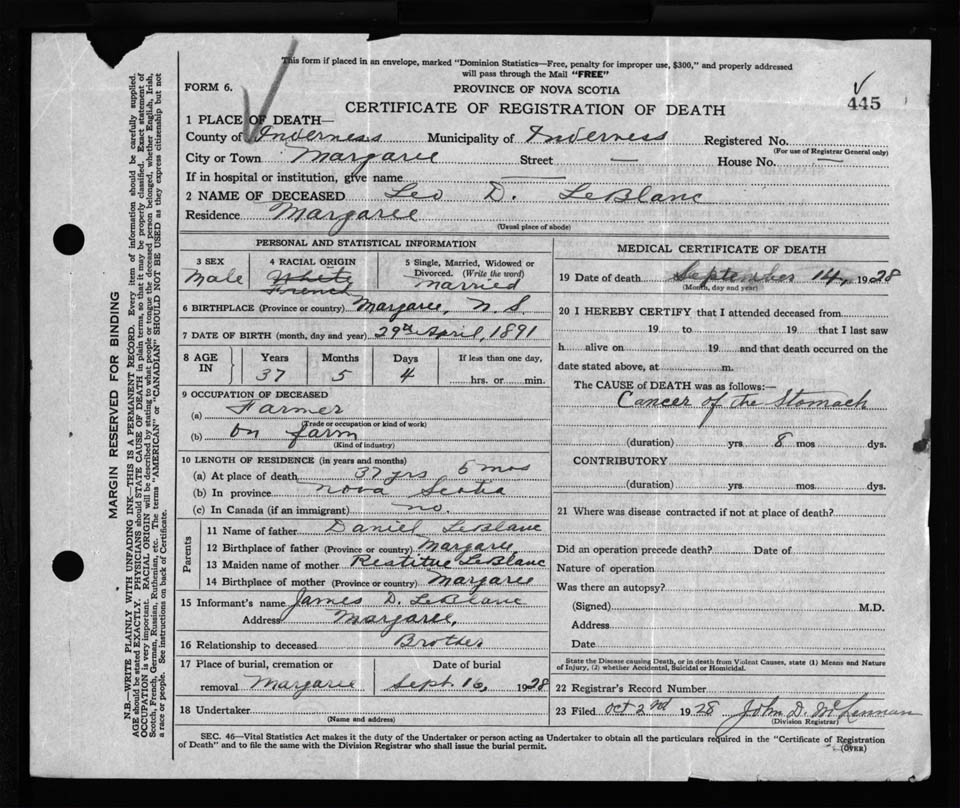 This form if placed in an envelope, marked "Dominion Statistics—Free, penalty for improper use, $300," and properly addressed
will pass through the Mail "FREE"
FORM 6.
PROVINCE OF NOVA SCOTIA
445
CERTIFICATE OF REGISTRATION OF DEATH
1 PLACE OF DEATH—
County of Inverness Municipality of Inverness Registered No.
(For use of Registrar General only)
City or Town Margaree Street — House No. —
If in hospital or institution, give name
2 NAME OF DECEASED Leo D. LeBlanc
Residence Margaree
(Usual place of abode)
PERSONAL AND STATISTICAL INFORMATION
3 SEX
Male
4 RACIAL ORIGIN
White
French
5 Single, Married, Widowed or
Divorced. (Write the word)
Married
6 BIRTHPLACE (Province or country) Margaree, N.S.
7 DATE OF BIRTH (month, day and year) 29th April, 1891
8 AGE
IN
Years
37
Months
5
Days
4
If less than one day,
hrs. or min.
9 OCCUPATION OF DECEASED
(a) Farmer
(Trade or occupation or kind of work)
(b) on farm
(Kind of industry)
10 LENGTH OF RESIDENCE (in years and months)
(a) At place of death 37 yrs 5 mos
(b) In province Nova Scotia
(c) In Canada (if an immigrant) no.
Parents
11 Name of father Daniel LeBlanc
12 Birthplace of father (Province or country) Margaree
13 Maiden name of mother Restitue LeBlanc
14 Birthplace of mother (Province or country) Margaree
15 Informant's name James D. LeBlanc
Address Margaree,
16 Relationship to deceased Brother
17 Place of burial, cremation or
removal Margaree
Date of burial
Sept. 16, 1928
18 Undertaker
(Name and address)
MEDICAL CERTIFICATE OF DEATH
19 Date of death September 14, 1928
(Month, day and year)
20 I HEREBY CERTIFY that I attended deceased from
19 to 19 that I last saw
h alive on 19 and that death occurred on the
date stated above, at m.
The CAUSE of DEATH was as follows:—
Cancer of the Stomach
(duration) yrs. 8 mos. dys.
CONTRIBUTORY
(duration) yrs. mos. dys.
21 Where was disease contracted if not at place of death?
Did an operation precede death? Date of
Nature of operation
Was there an autopsy?
(Signed) M.D.
Address
Date
State the Disease causing Death, or in death from Violent Causes, state (1) Means and Nature
of Injury, (2) whether Accidental, Suicidal or Homicidal.
22 Registrar's Record Number
23 Filed Oct 2nd 1928 John D. McLennan
(Division Registrar)
SEC. 46—Vital Statistics Act makes it the duty of the Undertaker or person acting as Undertaker to obtain all the particulars required in the "Certificate of Registration
of Death" and to file the same with the Division Registrar who shall issue the burial permit.
(OVER)
MARGIN RESERVED FOR BINDING
N.B.—WRITE PLAINLY WITH UNFADING INK—THIS IS A PERMANENT RECORD. Every item of information should be carefully supplied.
AGE should be stated EXACTLY. PHYSICIANS should STATE CAUSE OF DEATH in plain terms, so that it may be properly classified. Exact statement of
OCCUPATION is very important. RACIAL ORIGIN will be described by stating to what people or tongue the deceased person belonged, whether English, Irish,
Scotch, French, German, Russian, Ruthenian, etc. The terms "AMERICAN" or "CANADIAN" SHOULD NOT BE USED as they express citizenship but not
a race or people. See instructions on back of Certificate.